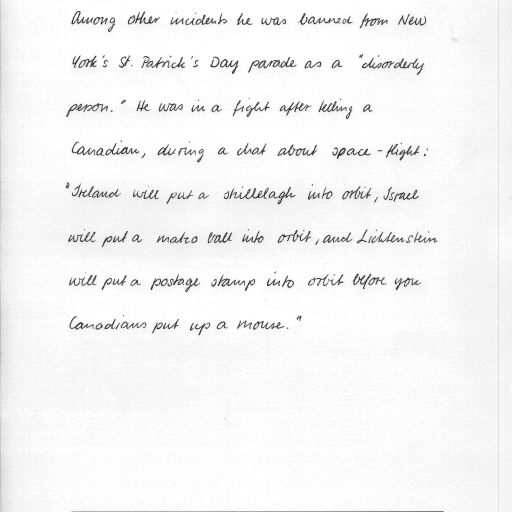 Among other incidents he was banned from New
York's St. Patrick's Day parade as a "disorderly
person." He was in a fight after telling a
Canadian, during a chat about space-flight:
"Ireland will put a shillelagh into orbit, Israel
will put a matzo ball into orbit, and Lichtenstein
will put a postage stamp into orbit before you
Canadians put up a mouse."